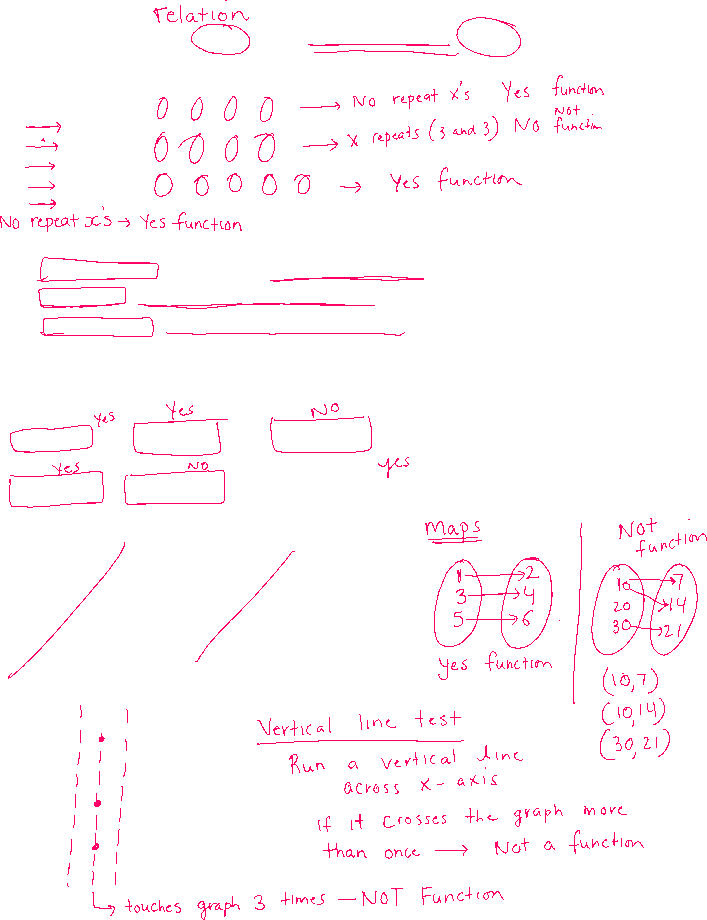 relation
No repeat x's Yes function
x repeats (3 and 3) No Not function
Yes function
No repeat x's → Yes function
Yes
Yes
NO
Yes
NO
yes
Maps
1 → 2
3 → 4
5 → 6
Yes function
Not function
10 7
20 14
30 21
(10,7)
(10,14)
(30,21)
Vertical line test
Run a vertical line
across x-axis
if it crosses the graph more
than once → Not a function
touches graph 3 times — NOT Function